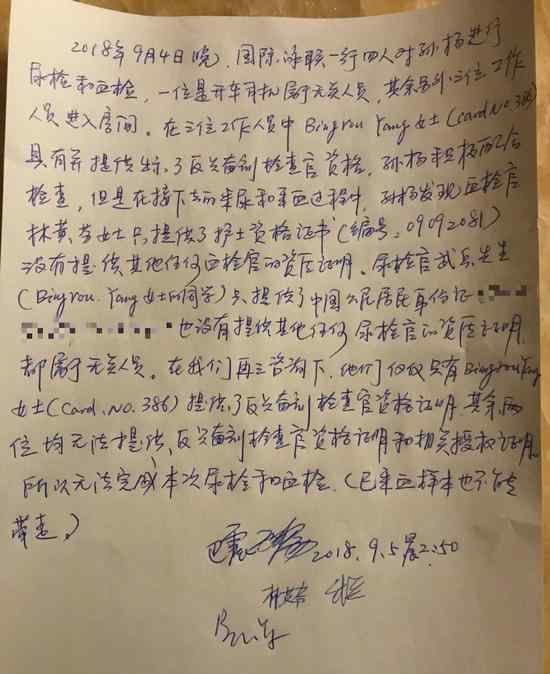 2018年9月4日晚,国际泳联一行四人对孙杨进行
尿检和血检,一位是开车司机属于无关人员,其余另外三位工作
人员进入房间。在三位工作人员中Bingrou Yang女士(card.No.386)
具有并提供出示了反兴奋剂检查官资格,孙杨积极配合
检查,但是在接下去的采尿和采血过程中,孙杨发现血检官
林 女士只提供了护士资格证书(编号:09092081)
没有提供其他任何血检官的资质证明。尿检官 先生
(Bingrou Yang女士的同学)只提供了中国公民居民身份证
也没有提供其他任何尿检官的资质证明,
都属于无关人员。在我们再三咨询下,他们仅仅只有Bingrou Yang
女士(Card.No.386)提供了反兴奋剂检查官资格证明,其余两
位均无法提供反兴奋剂检查官资格证明和相关授权证明。
所以无法完成本次尿检和血检.(已采血样本也不能
带走)
2018.9.5晨2:50